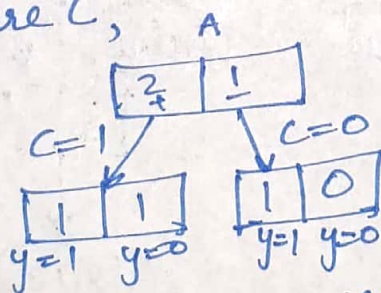 re C,
A
2 + 1 -
C=1 C=0
1 1 1 0
y=1 y=0 y=1 y=0